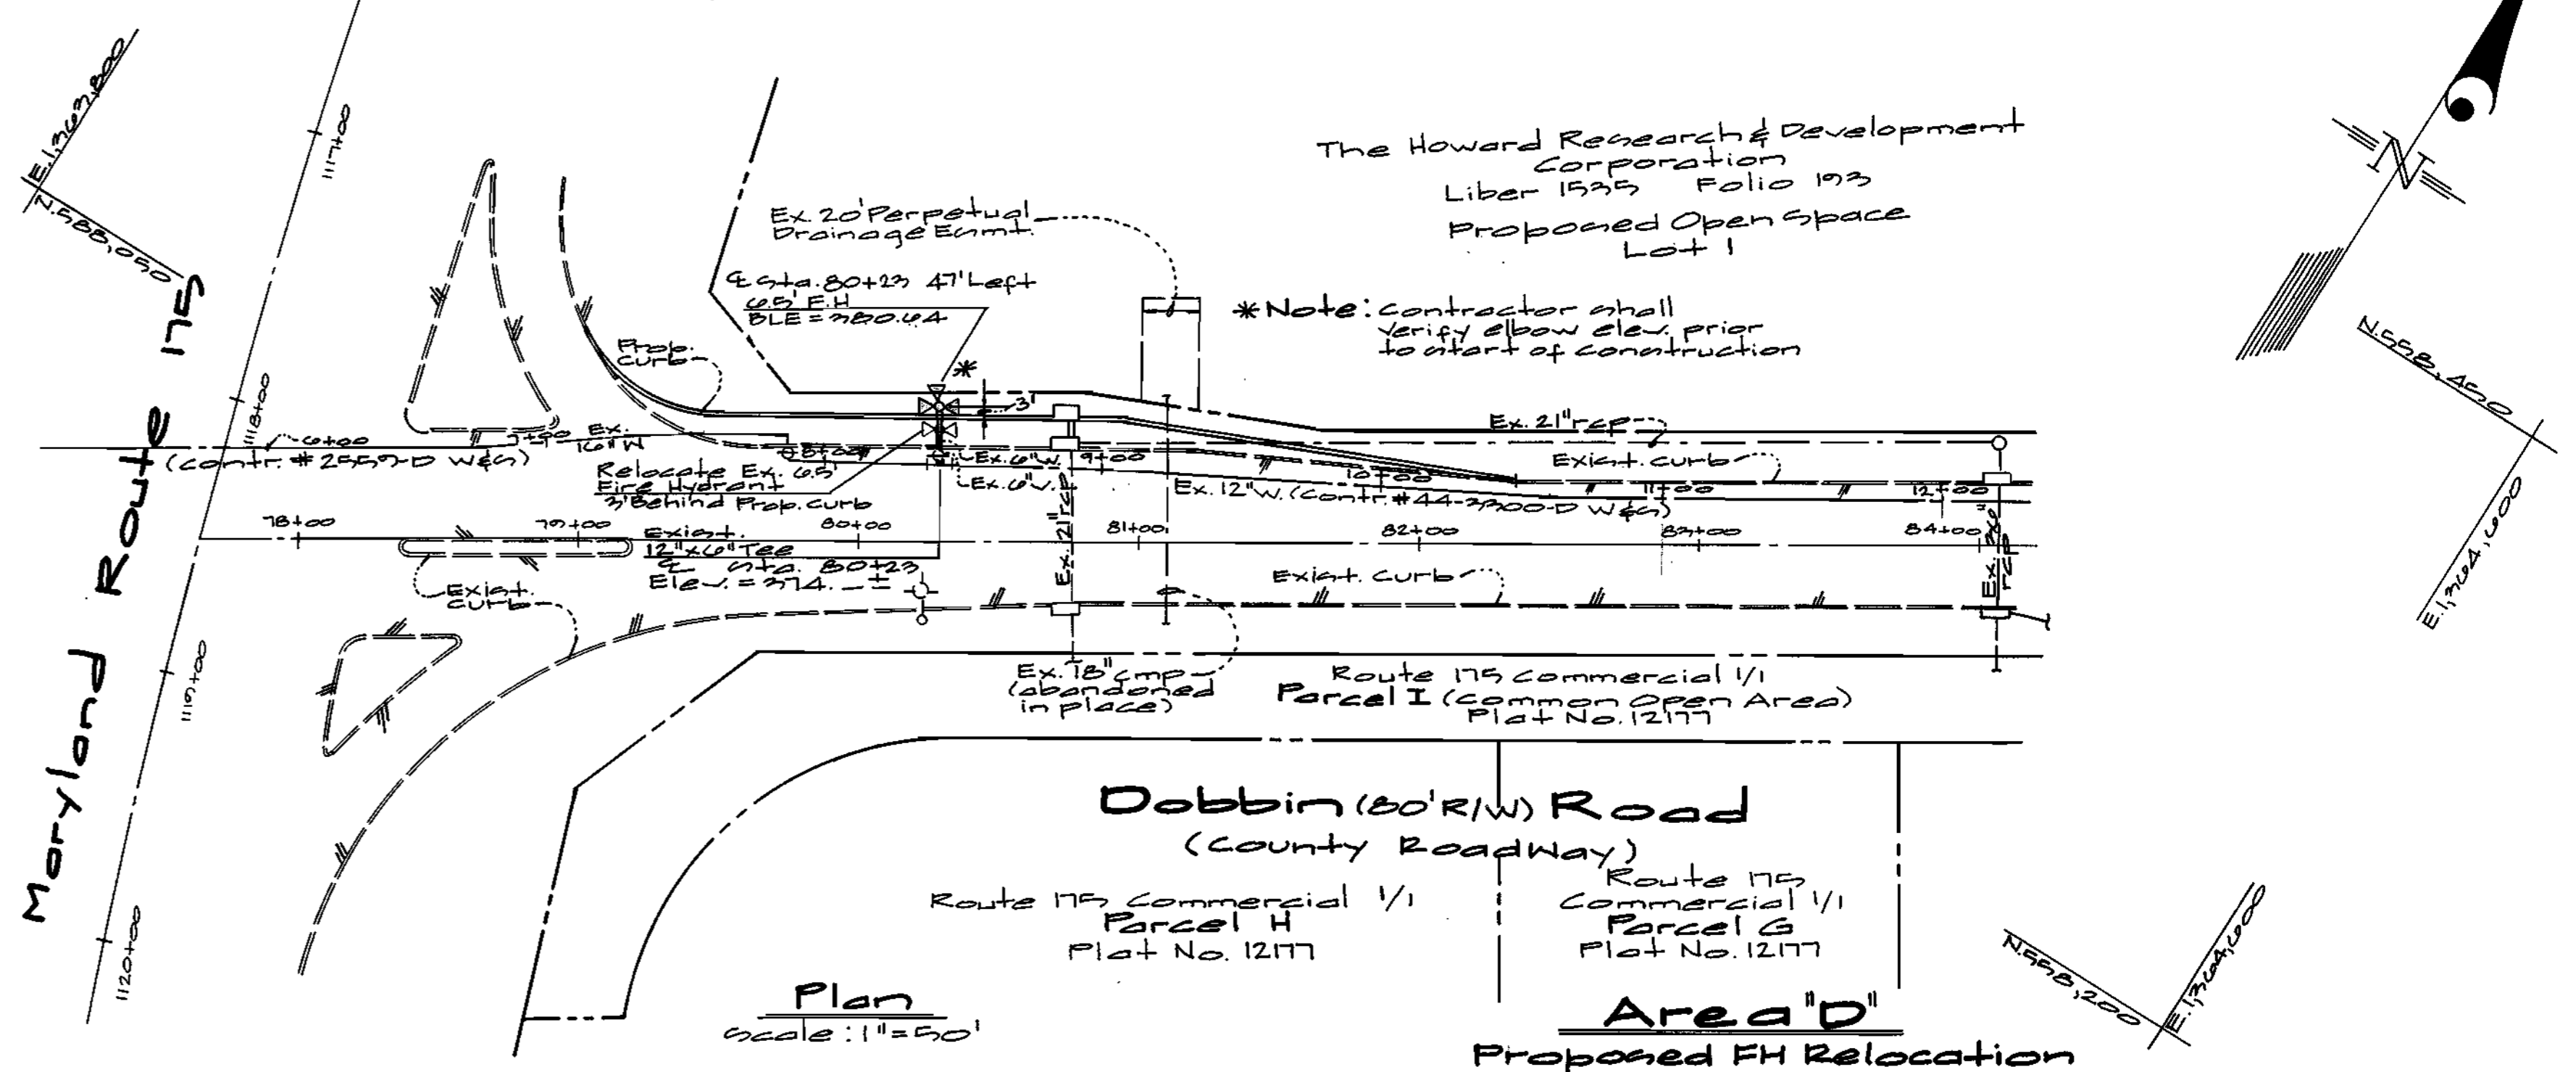 E.1,363,800
N.588,050
1117+00
1118+00
1119+00
1120+00
Maryland Route 175
The Howard Research & Development
Corporation
Liber 1535 Folio 193
Proposed Open Space
Lot 1
Ex. 20' Perpetual
Drainage Esmt.
℄ Sta. 80+23 47' Left
6.5' F.H.
BLE = 380.64
*Note: Contractor shall
verify elbow elev. prior
to start of construction
N
N.558,450
E.1,364,600
Prop.
curb
*
3'
6+00
7+00
Ex.
16"W
(Contr. # 2559-D W&S)
8+00
Relocate Ex. 6.5'
Fire Hydrant
3' Behind Prop. Curb
Ex. 6"W.
Ex. 6"V.
9+00
Ex. 21"rcp
Exist. curb
10+00
11+00
12+00
Ex. 12"W. (Contr. # 44-3300-D W&S)
78+00
79+00
80+00
81+00
82+00
83+00
84+00
Exist.
12"x6" Tee
℄ Sta. 80+23
Elev. = 374. _ ±
Ex. 21"rcp
Exist. Curb
Ex.
rcp
Exist.
curb
Ex. 78"cmp
(abandoned
in place)
Route 175 Commercial 1/1
Parcel I (Common Open Area)
Plat No. 12177
Dobbin (80' R/W) Road
(County RoadWay)
Route 175 Commercial 1/1
Parcel H
Plat No. 12177
Route 175
Commercial 1/1
Parcel G
Plat No. 12177
N.558,200
E.1,364,600
Plan
Scale : 1"=50'
Area "D"
Proposed FH Relocation